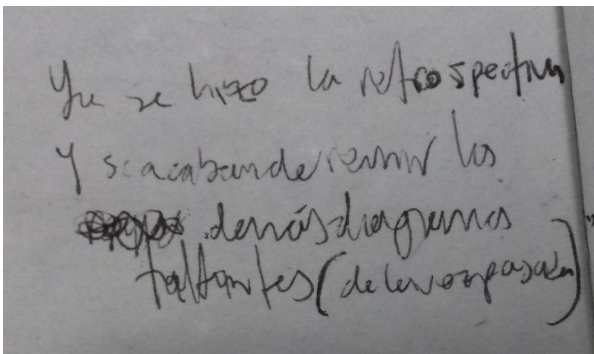 Ya se hizo la retrospectiva
Y se acaban de reunir los
demás diagramas
faltantes (de la vez pasada)